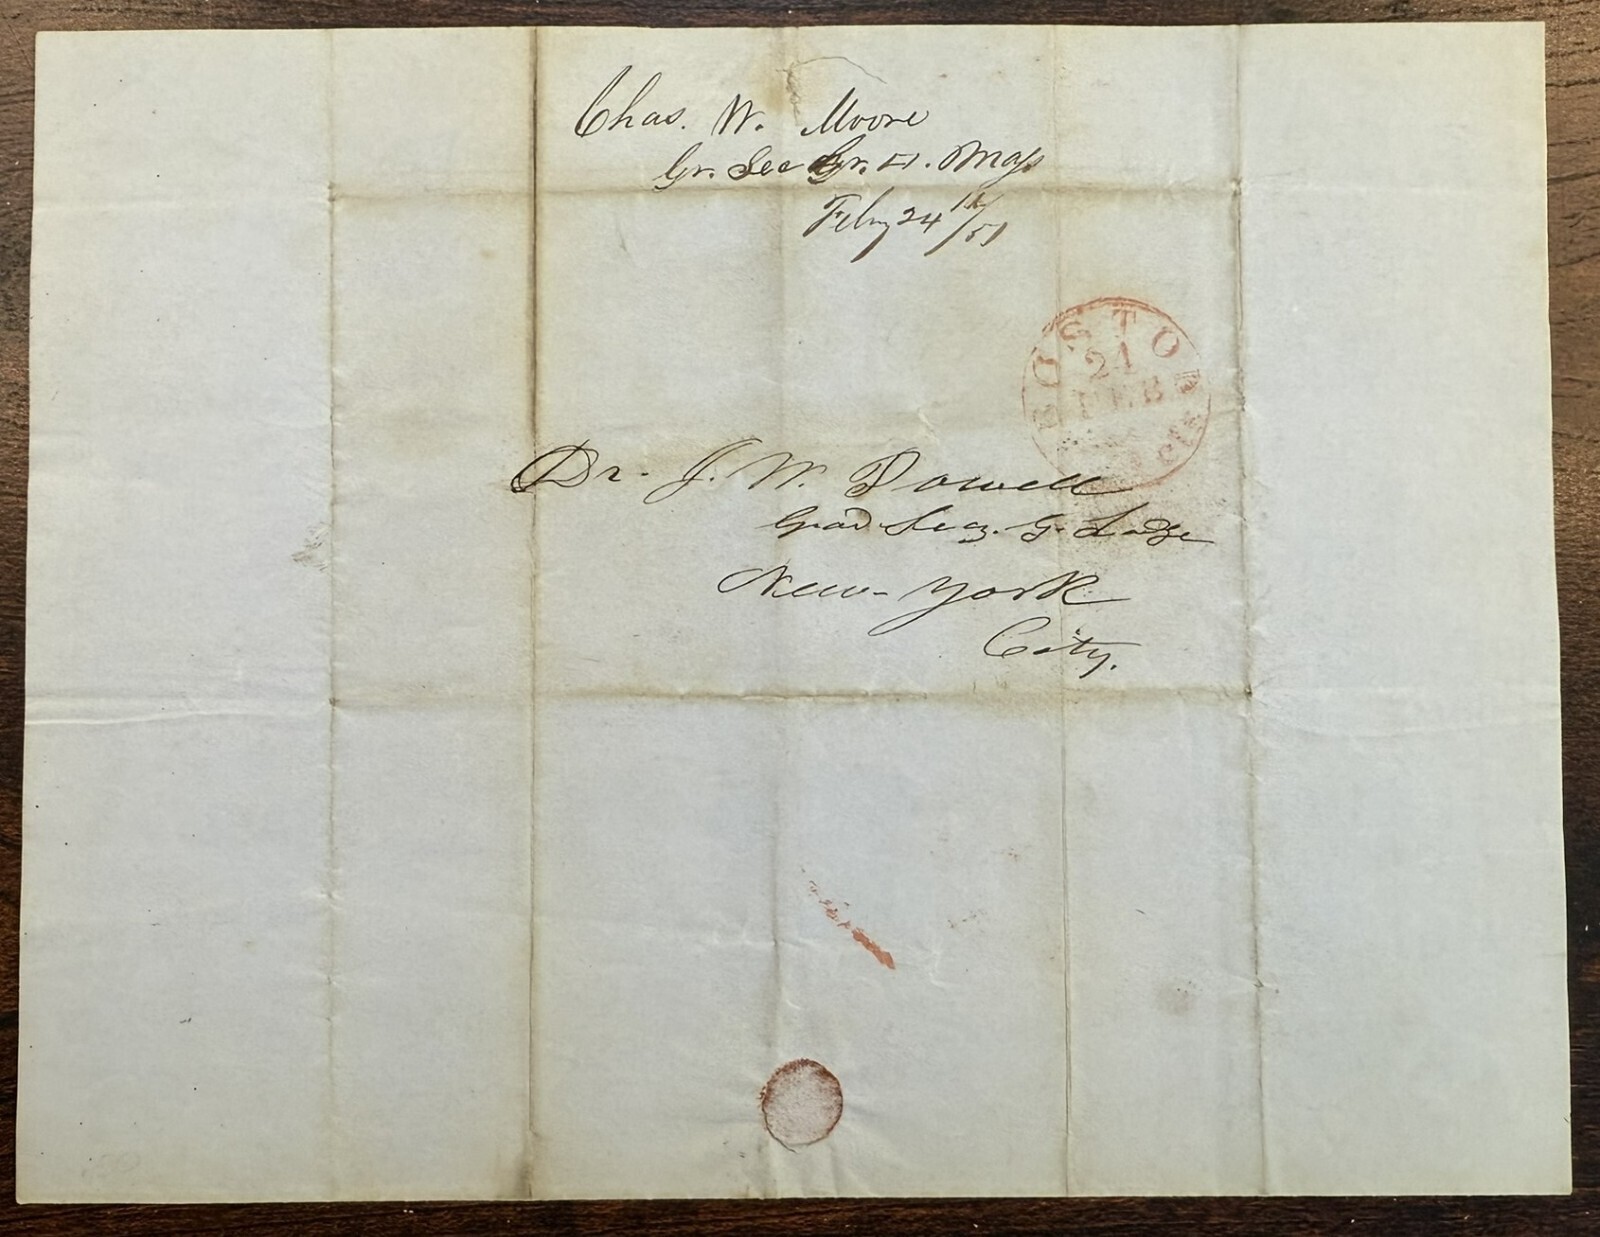 Chas. W. Moore
Gr. Sec Gr. L. Mass
Feby 24th/51
BOSTON
24
FEB
cts
Dr. J. W. Powell
Grad Secy. G. Lodge
New-York
City.